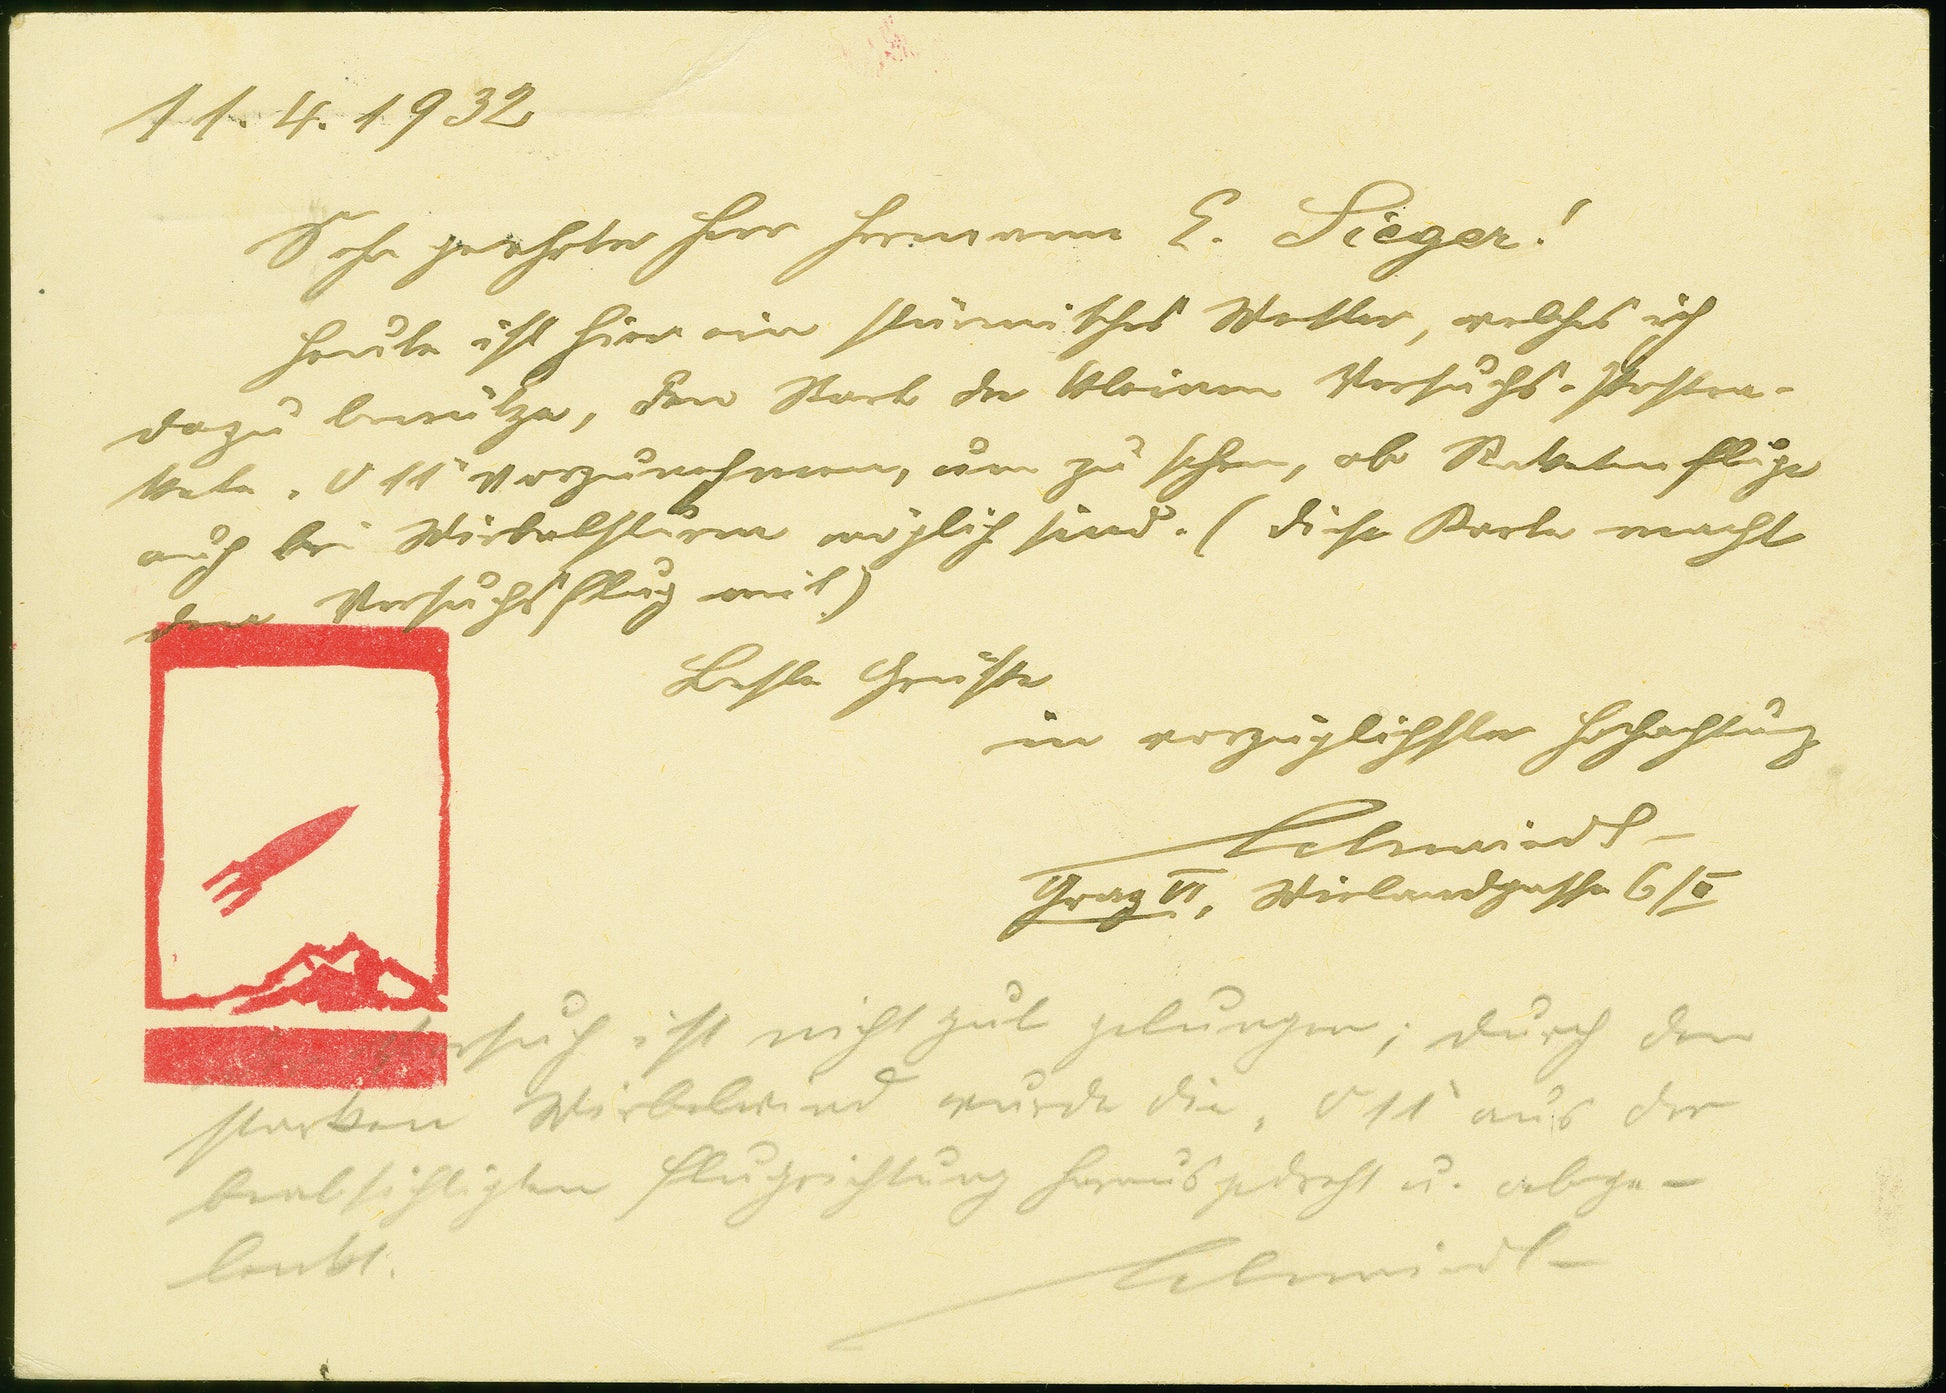 11. 4. 1932
Sehr geehrter Herr Hermann E. Sieger!
Heute ist hier ein stürmisches Wetter, welches ich
dazu benütze, den Start der kleinen Versuchs-Postra-
kete „V 11“ vorzunehmen, um zu sehen, ob Raketenflüge
auch bei Wirbelsturm möglich sind. (Diese Karte macht
den Versuchsflug mit)
Beste Grüsse
in vorzüglichster Hochachtung
Schmiedl
Graz VI, Wielandgasse 6/
Versuch ist nicht gut gelungen; durch den
starken Wirbelwind wurde die „V 11“ aus der
beabsichtigten Flugrichtung herausgedreht u. abge-
lenkt.
Schmiedl